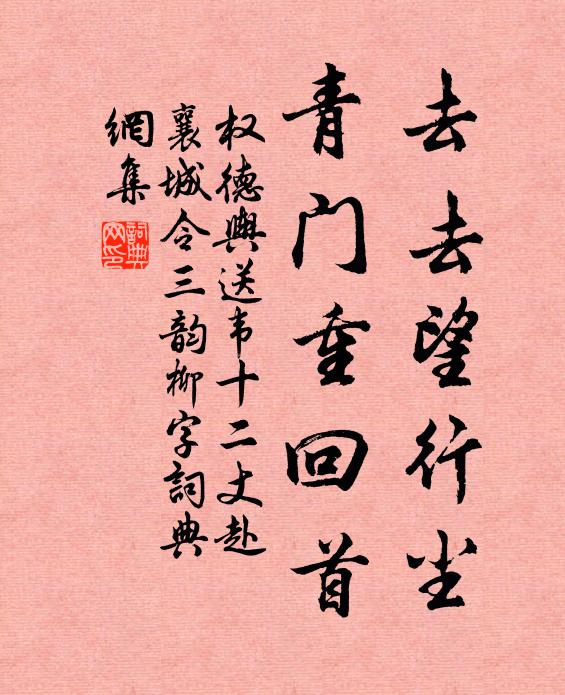 去去望行尘
青门重回首
权德舆送韦十二丈赴
襄城令三韵柳字詞典
網集
詞典
网印